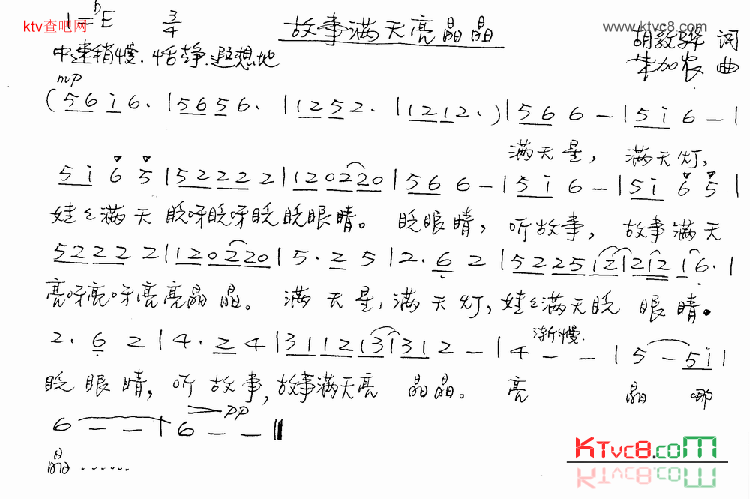 ktv查吧网
ktvc8.com
www.ktvc8.com
1=bE 3/4 故事满天亮晶晶
中速稍慢.恬静.遐想地
词
朱加农 曲
mp
(5 6 i 6. | 5 6 5 6. | 1 2 5 2. | 1 2 1 2.) | 5 6 6 – | 5 i 6 – |
满天星, 满天灯,
5 i 6 5 | 5 2 2 2 2 | 1 2 0 2 2 0 | 5 6 6 – | 5 i 6 – | 5 i 6 5 |
娃娃满天眨呀眨呀眨眨眼睛。 眨眼睛, 听故事, 故事满天
5 2 2 2 2 | 1 2 0 2 2 0 | 5. 2 5 | 2. 6 2 | 5 2 2 5 1 2 | 2 1 2 1 6. |
亮呀亮呀亮亮晶晶。 满天星,满天灯,娃娃满天眨眼睛。
渐慢.
2. 6 2 | 4. 2 4 | 3 1 1 2 1 3 1 3 1 2 – | 4 – – | 5 – 5 i |
眨眼睛, 听故事,故事满天亮 晶晶。 亮 晶 哪
pp
6 – – | 6 – – ‖
晶……
KTvc8.com